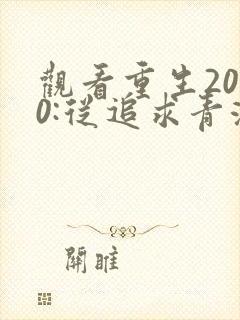 觀看重生20
0:從追求青
關睢